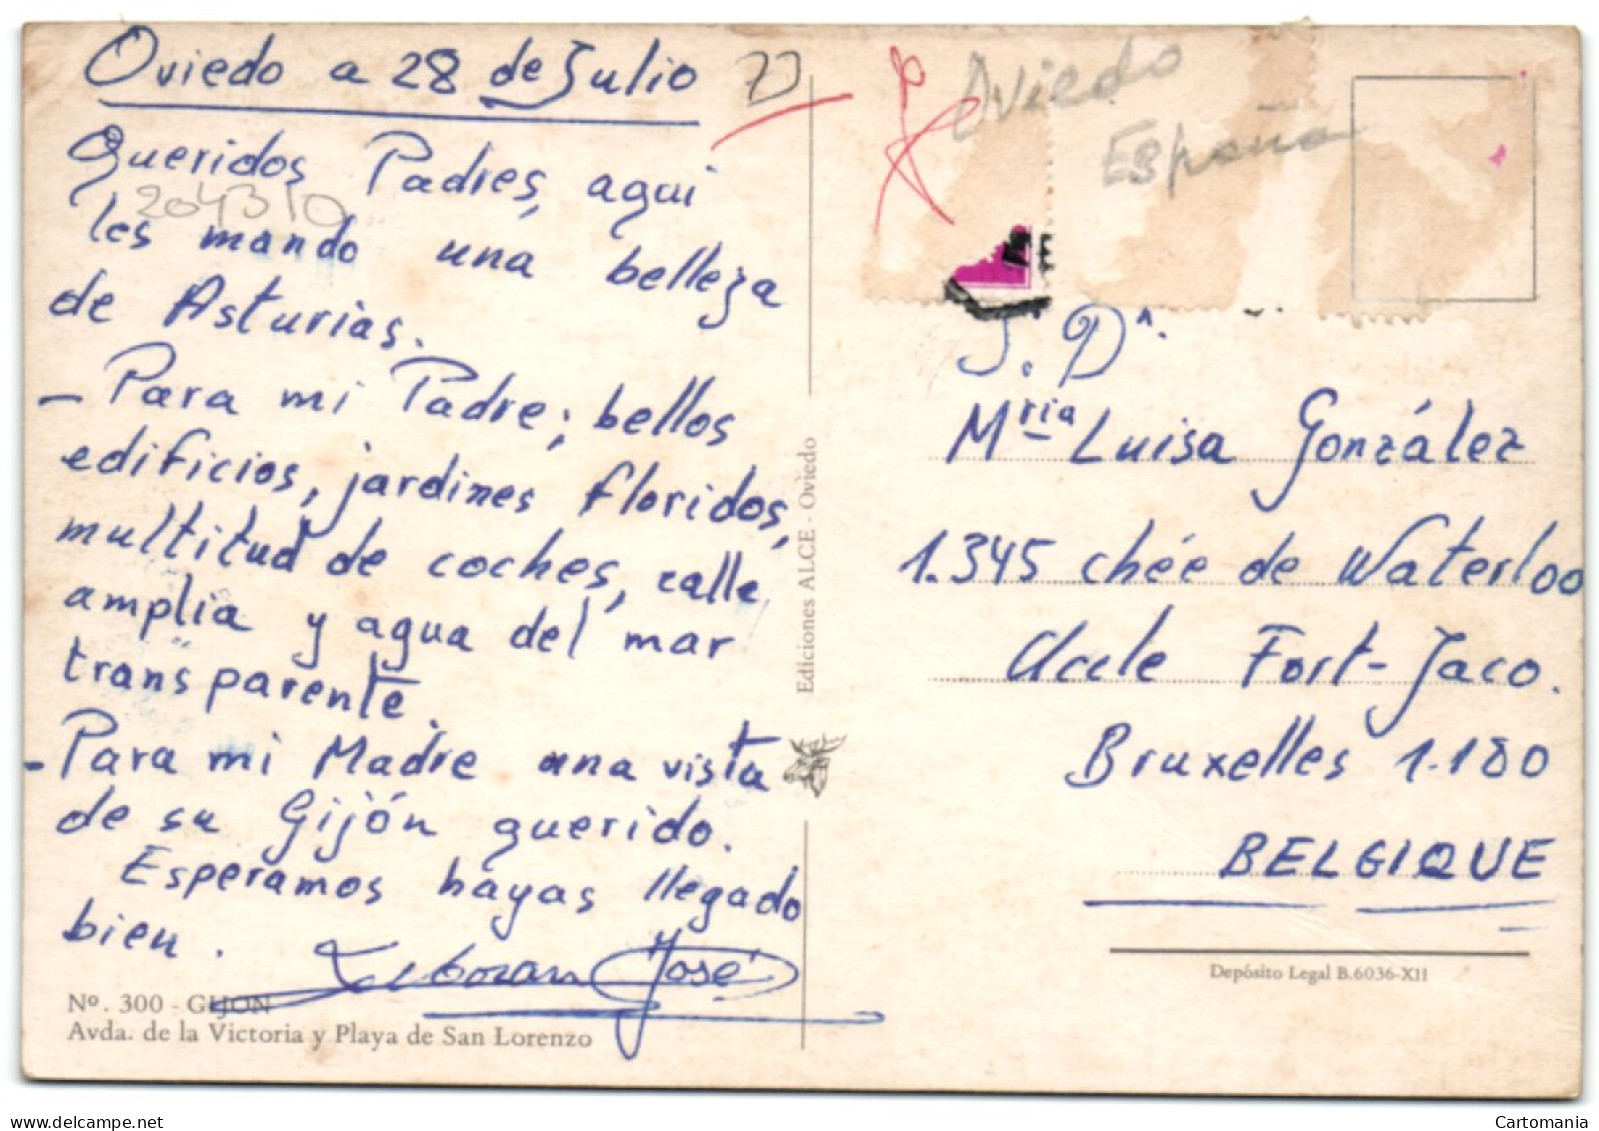 Oviedo a 28 de Julio
Queridos Padres, aqui
204310
les mando una belleza
de Asturias.
- Para mi Padre; bellos
edificios, jardines floridos,
multitud de coches, calle
amplia y agua del mar
transparente.
- Para mi Madre una vista
de su Gijón querido.
Esperamos hayas llegado
bien.
José
Nº. 300 - GIJON
Avda. de la Victoria y Playa de San Lorenzo
Ediciones ALCE - Oviedo
Oviedo
España
S. Dª.
Mría Luisa González
1.345 chée de Waterloo
Uccle Fort-Jaco.
Bruxelles 1.180
BELGIQUE
Depósito Legal B.6036-XII
Cartomania